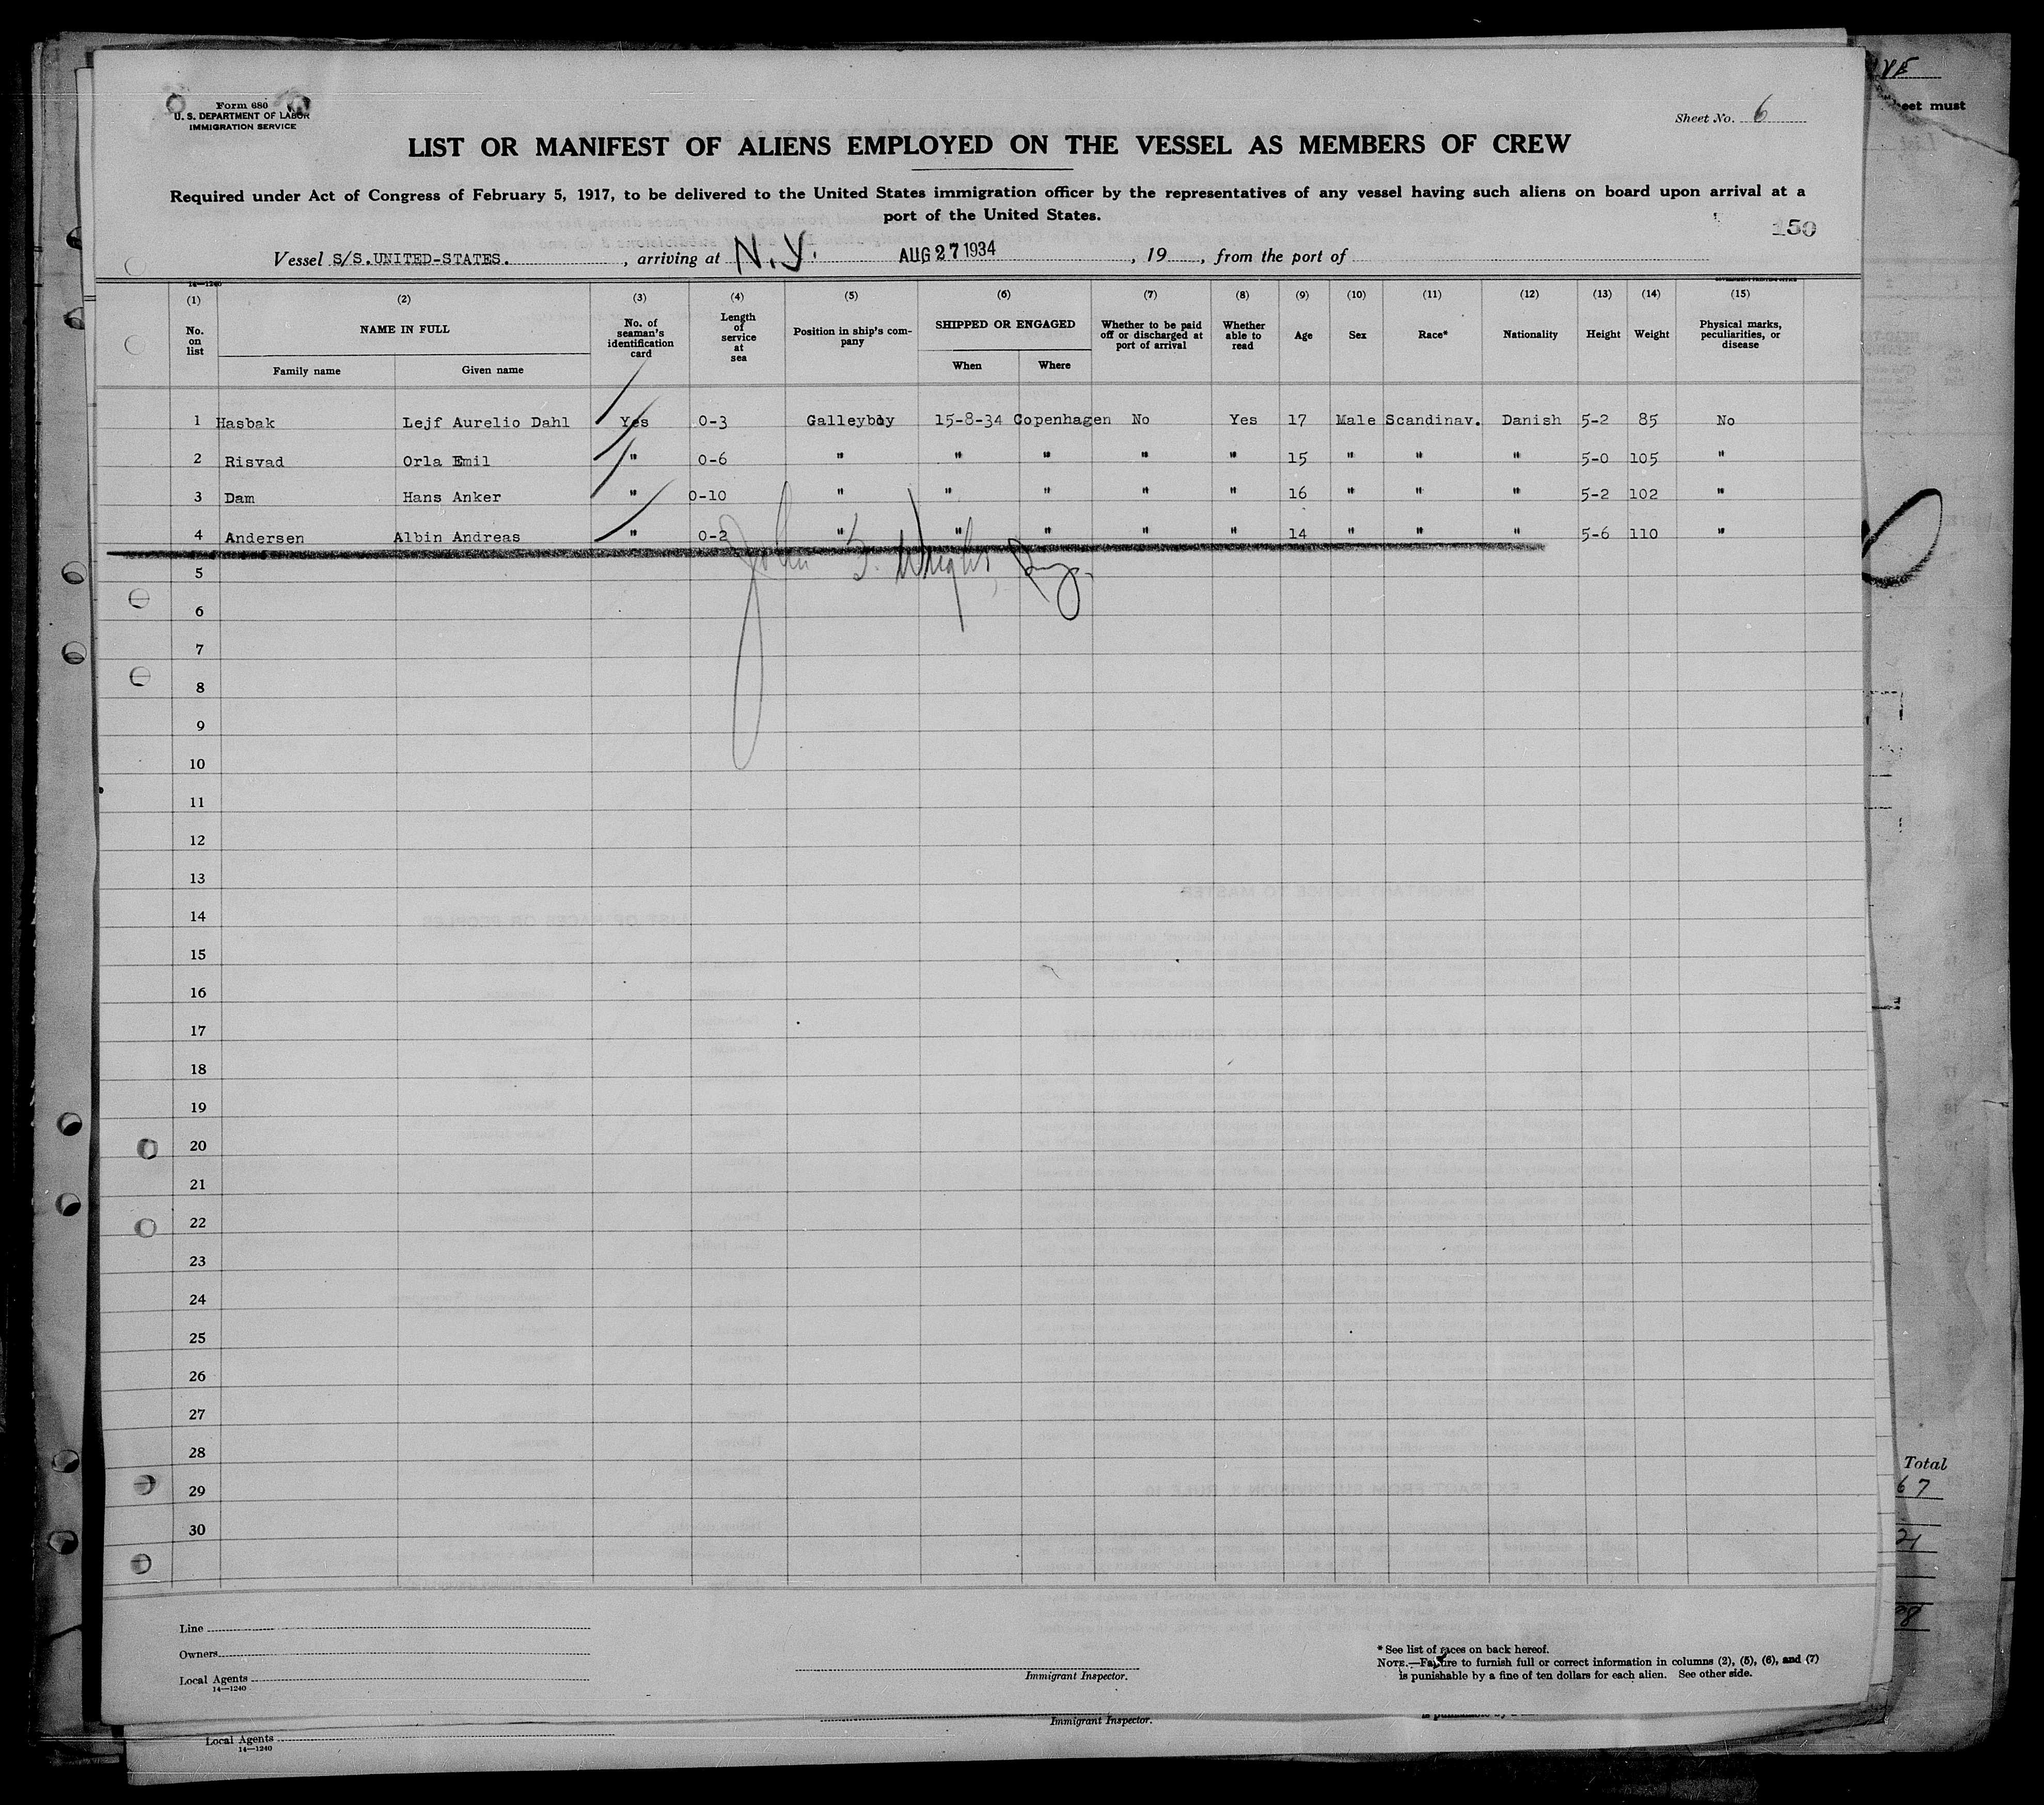 Form 680
U. S. DEPARTMENT OF LABOR
IMMIGRATION SERVICE
Sheet No. 6
LIST OR MANIFEST OF ALIENS EMPLOYED ON THE VESSEL AS MEMBERS OF CREW
Required under Act of Congress of February 5, 1917, to be delivered to the United States immigration officer by the representatives of any vessel having such aliens on board upon arrival at a
port of the United States.
150
Vessel S/S.UNITED-STATES. , arriving at N.Y. AUG 27 1934 , 19 , from the port of
14—1240
(1) (2) (3) (4) (5) (6) (7) (8) (9) (10) (11) (12) (13) (14) (15)
No. on list NAME IN FULL No. of seaman's identification card Length of service at sea Position in ship's company SHIPPED OR ENGAGED Whether to be paid off or discharged at port of arrival Whether able to read Age Sex Race* Nationality Height Weight Physical marks, peculiarities, or disease
Family name Given name When Where
1 Hasbak Lejf Aurelio Dahl Yes 0-3 Galleyboy 15-8-34 Copenhagen No Yes 17 Male Scandinav. Danish 5-2 85 No
2 Risvad Orla Emil " 0-6 " " " " " 15 " " " 5-0 105 "
3 Dam Hans Anker " 0-10 " " " " " 16 " " " 5-2 102 "
4 Andersen Albin Andreas " 0-2 " " " " " 14 " " " 5-6 110 "
John Wright
5
6
7
8
9
10
11
12
13
14
15
16
17
18
19
20
21
22
23
24
25
26
27
28
29
30
Line
Owners
Local Agents
14—1240
Immigrant Inspector.
* See list of races on back hereof.
NOTE.—Failure to furnish full or correct information in columns (2), (5), (6), and (7)
is punishable by a fine of ten dollars for each alien. See other side.
Local Agents
14—1240
Immigrant Inspector.
eet must
Total
67